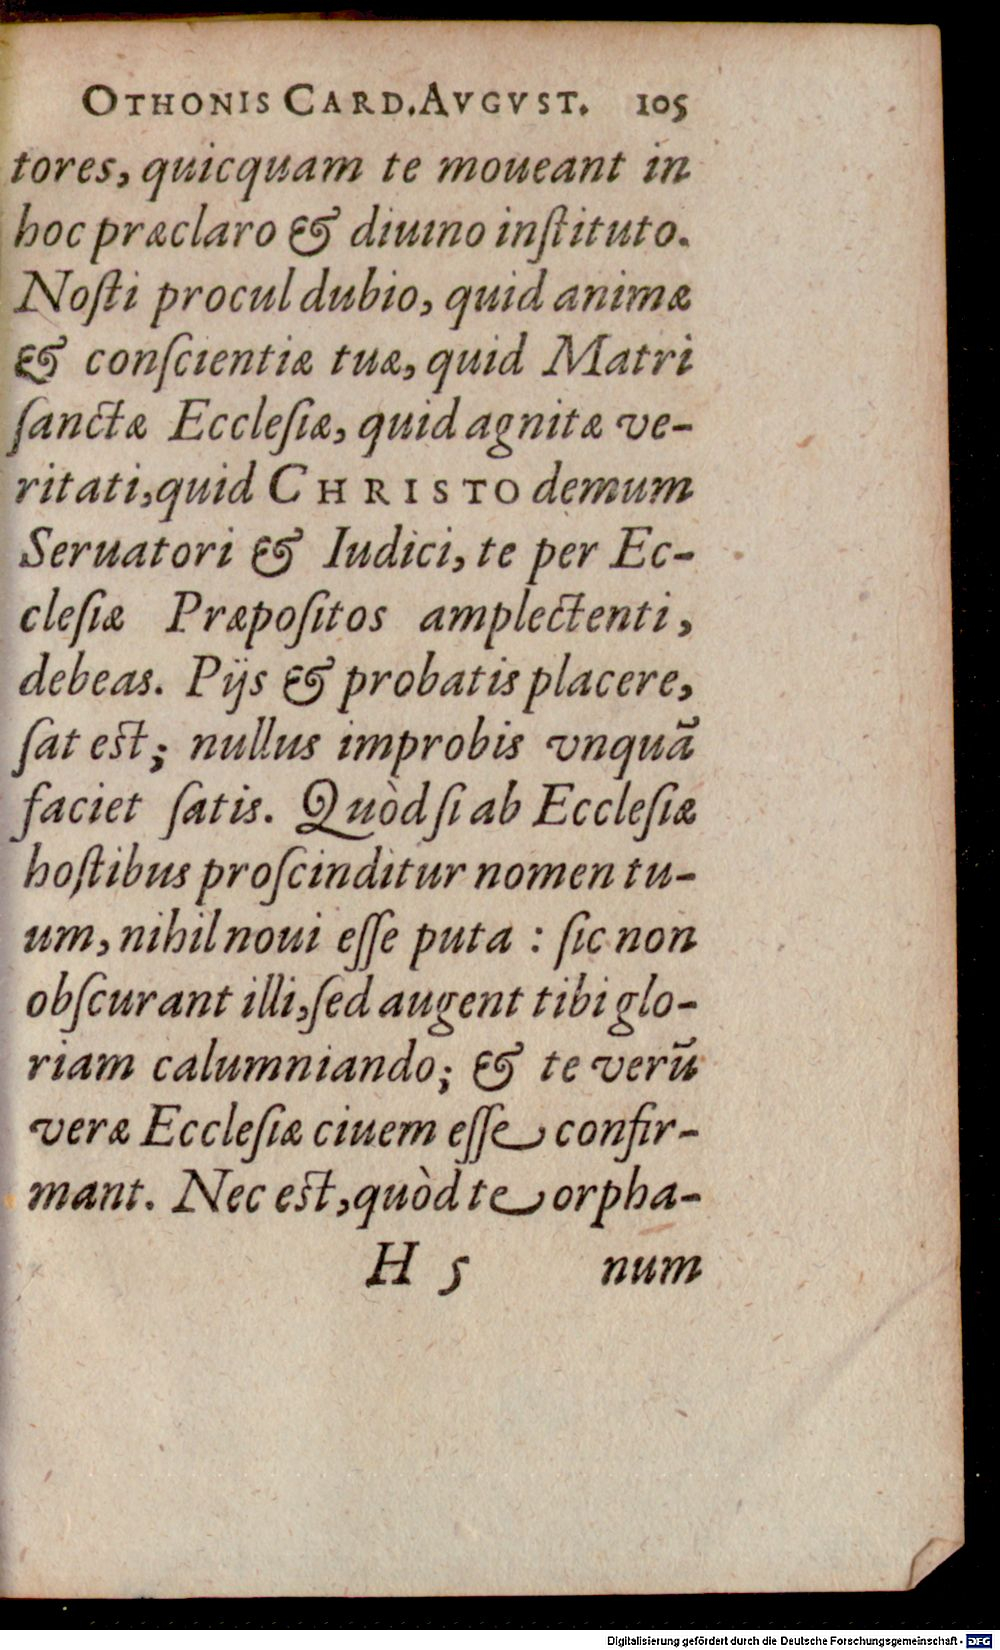 OTHONIS CARD. AVGVST. 105
tores, quicquam te moueant in
hoc præclaro & diuino inſtituto.
Noſti procul dubio, quid animæ
& conſcientiæ tuæ, quid Matri
ſanctæ Eccleſiæ, quid agnitæ ve-
ritati, quid CHRISTO demum
Seruatori & Iudici, te per Ec-
cleſiæ Præpoſitos amplectenti,
debeas. Pijs & probatis placere,
ſat est; nullus improbis vnquā
faciet ſatis. Quòd ſi ab Eccleſiæ
hoſtibus proſcinditur nomen tu-
um, nihil noui eſſe puta : ſic non
obſcurant illi, ſed augent tibi glo-
riam calumniando; & te verū
veræ Eccleſiæ ciuem eſſe confir-
mant. Nec est, quòd te orpha-
H 5 num
Digitalisierung gefördert durch die Deutsche Forschungsgemeinschaft - DFG